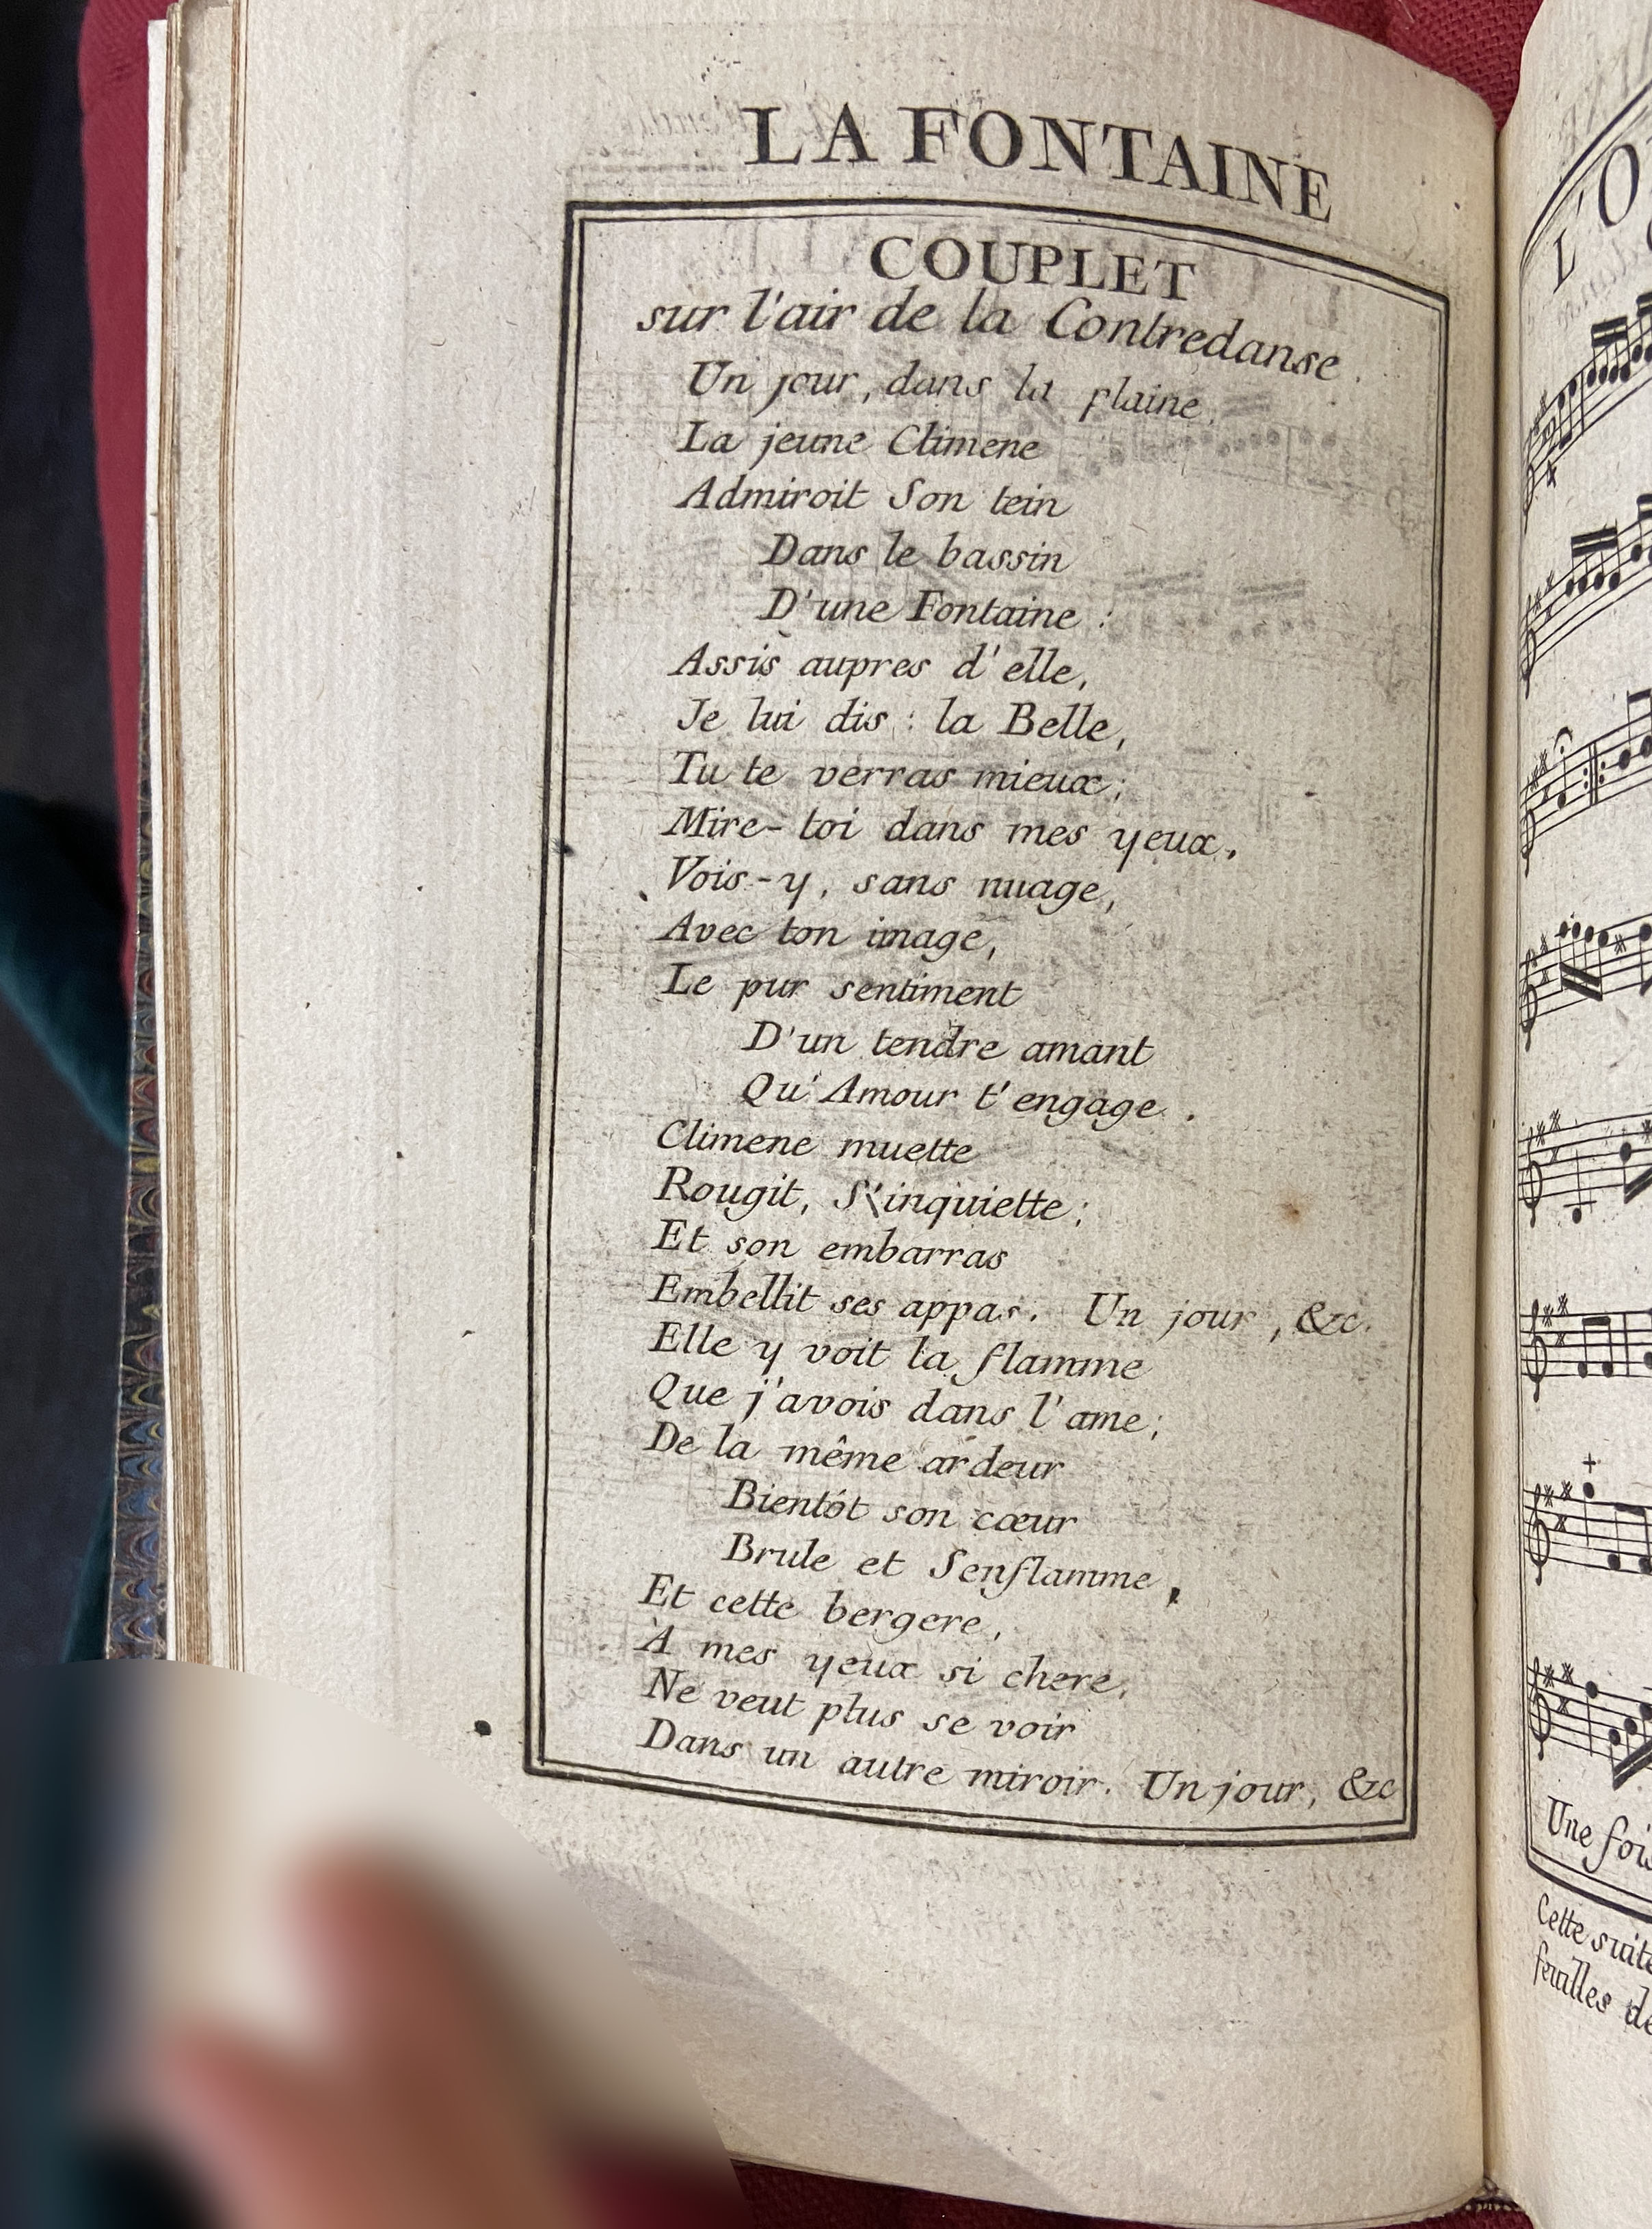 LA FONTAINE
COUPLET
sur l'air de la Contredanse.
Un jour, dans la plaine,
La jeune Climene
Admiroit Son tein
Dans le bassin
D'une Fontaine :
Assis aupres d'elle,
Je lui dis : la Belle,
Tu te verras mieux ;
Mire-toi dans mes yeux.
Vois-y, sans nuage,
Avec ton image,
Le pur sentiment
D'un tendre amant
Qu'Amour t'engage.
Climene muette
Rougit, S'inquiette ;
Et son embarras
Embellit ses appas. Un jour, &c.
Elle y voit la flamme
Que j'avois dans l'ame ;
De la même ardeur
Bientôt son cœur
Brule et Senflamme,
Et cette bergere,
À mes yeux si chere,
Ne veut plus se voir
Dans un autre miroir. Un jour, &c
Une fois
Cette suite
feuilles de